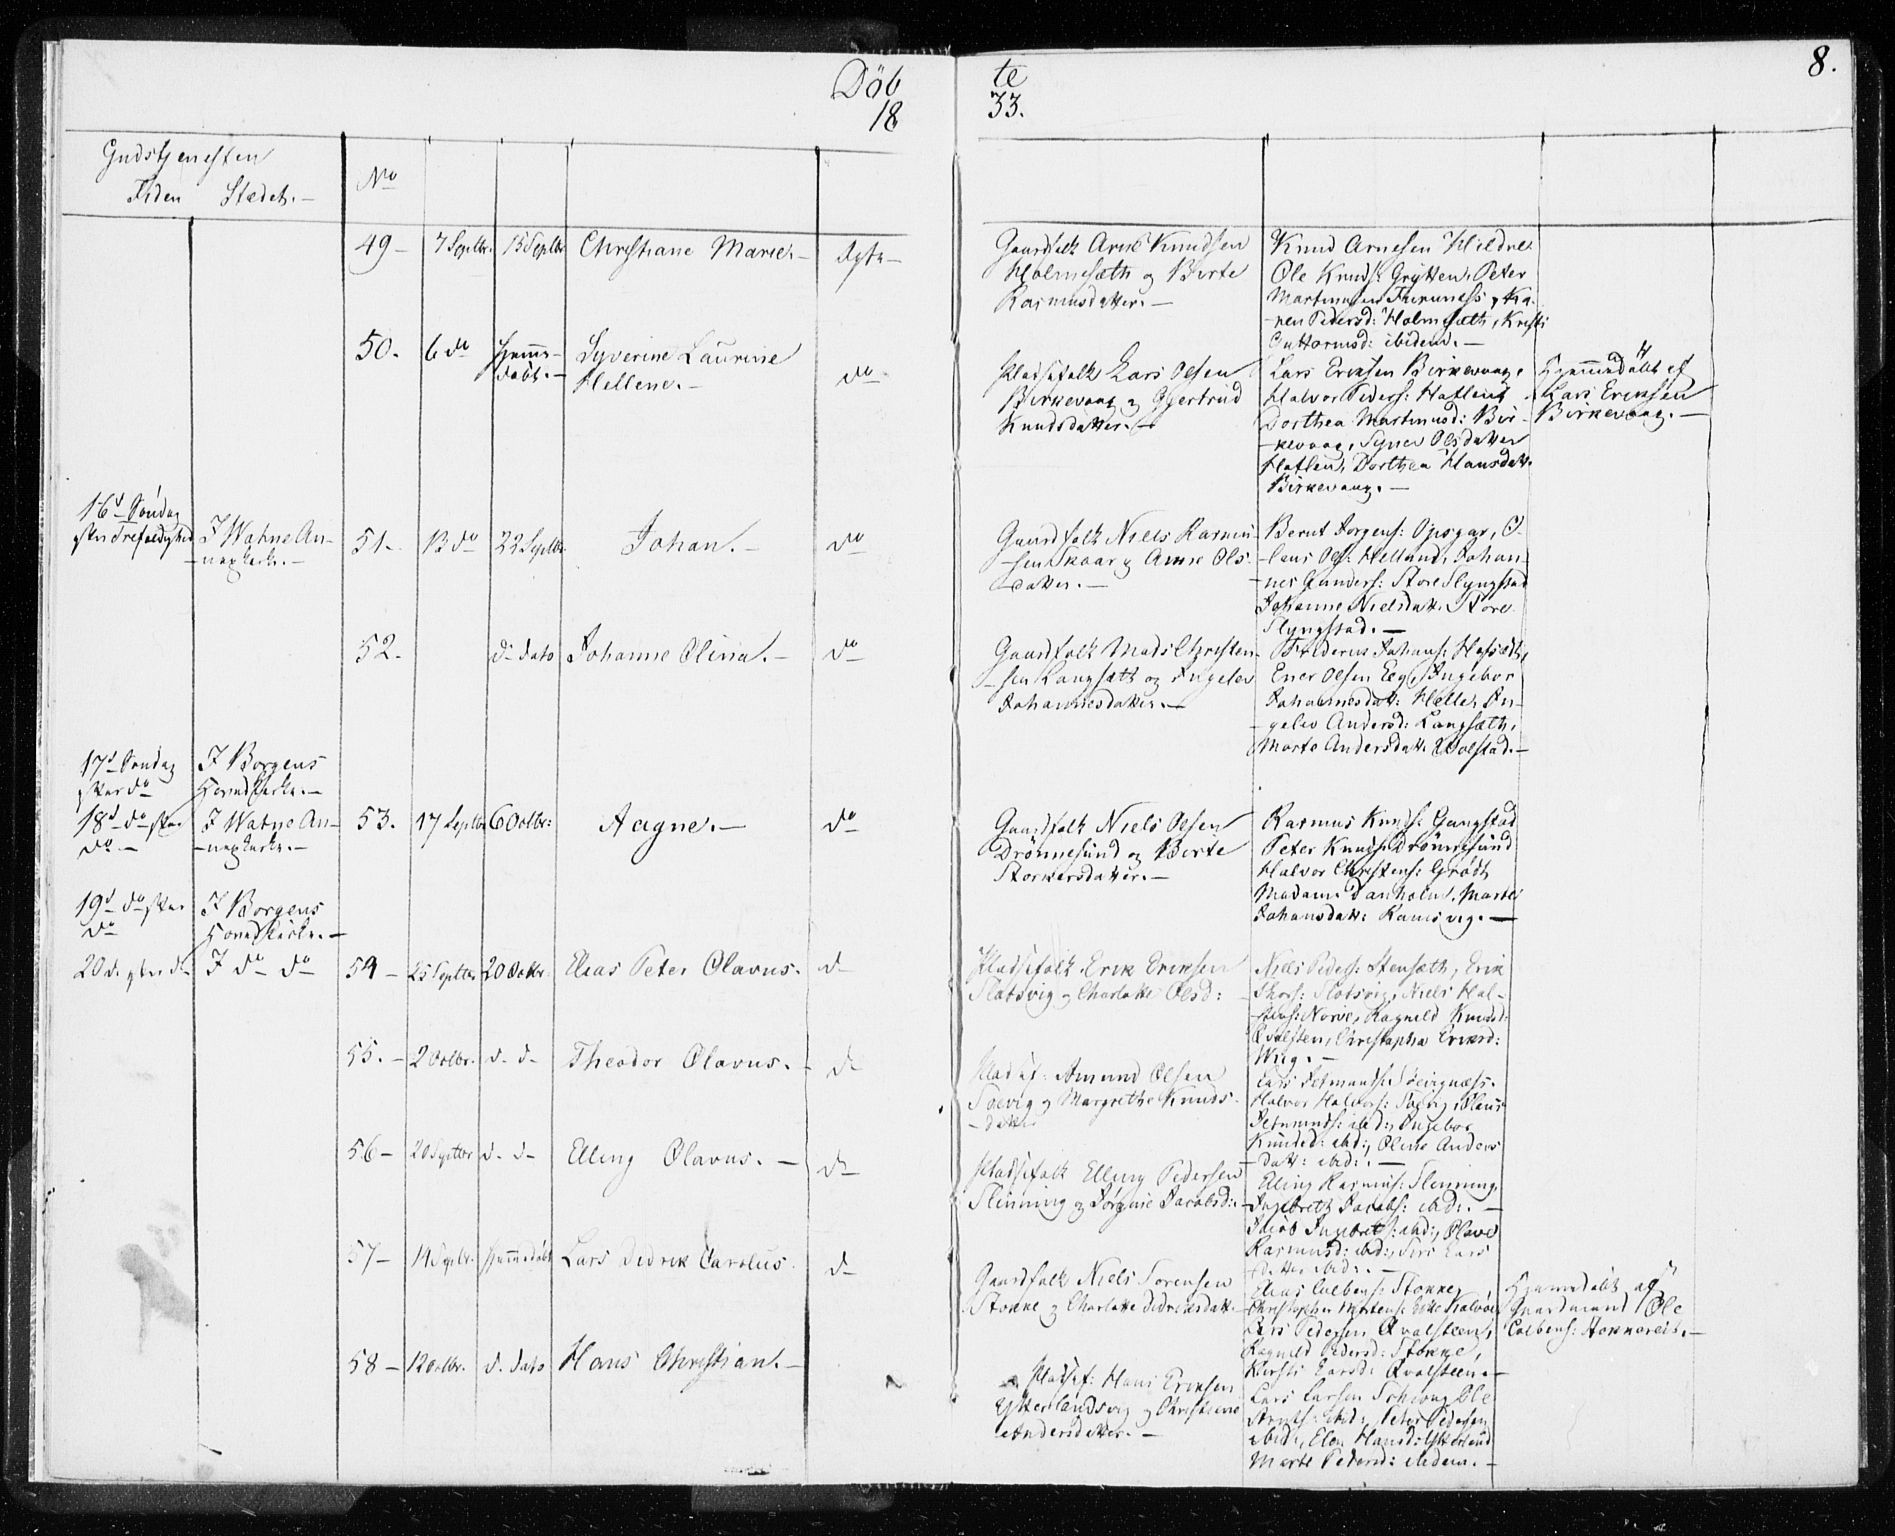 Döb te 8.
18 33.
Gudstjenesten
Tiden Stædet.-
No
49- 7 Septbr. 15 Septbr Christiane Marie.- Ægte-
Gaardfolk Arne Knudsen
Holmesæth og Berte
Rasmusdatter.-
Knud Arnesen Hildre
Ole Knuds: Grytten, Peter
Martinusen Furuness, Ka-
-ren Pedersd: Holmesæth, Kristi
Guttormsd: ibidem.-
50. 6 do Hjemme-
döbt.-
Syverine Laurine
Hellene.-
do
Pladsefolk Lars Olsen
Birkevaag og Gjertrud
Knudsdatter.-
Lars Eriksen Birkevaag,
Halvor Peders: Hatlen,
Dorthea Martinusd: Bir-
-kevaag, Olsdatter
Hatlen, Dorthea Hansdatt:
Birkevaag.-
Hjemmedöbt af
Lars Eriksen
Birkevaag.-
16d Söndag
efter Trefoldighed
I Watne An-
-nexkirke.-
51.- 13 do 22 Septbr. Johan.- do
Gaardfolk Niels Rasmu-
-sen Skaar og Anne Ols-
-datter.-
Bernt Jorgens: Opsgar, O-
-laus Ols: Helland, Johan-
-nes Gunders: Store Slyngstad
Johanne Nielsdatt: Store
Slyngstad.-
52.- d- dato Johanne Olina.- do
Gaardfolk Mads Christen-
-sen Langsæth og Ingelev
Johannesdatter.-
Johans:
Ener Olsen Eeg, Ingebor
Johannesdatt: Helle, In-
-gelev Andersd: Langsæth,
Marte Andersdatt: Wolstad.-
17d Söndag
efter do
I Borgens
Hovedkirke.-
18d do efter
do.-
I Watne An-
-nexkirke.-
53. 17 Septbr. 6 Octbr: Aagne.- do
Gaardfolk Niels Olsen
Drönnesund og Berte
Storkersdatter.-
Rasmus Knuds: Gangstad
Peter Knuds: Drönnesund
Halvor Christens: Grödt
Madam Danholm, Marte
Johansdatt: Ramsvig.-
19d do efter
do
I Borgens
Hovedkirke.-
20 d. efter d- I do do
54- 25 Septbr. 20 Octbr. Elias Peter Olavus. d-
Pladsefolk Erik Eriksen
Slotsvig og Charlotte Olsd:
Niels Peders: Stensæth, Erik
Slotsvig, Niels Hal-
Norve, Ragnild Knudsd:
Qvalsteen, Christopha Eriksd:
Wiig.-
55.- 2 Octbr. d- d- Theodor Olavus.- d-
Pladsf: Amund Olsen
Soevig og Margrethe Knuds-
-datt:
Lars
Halvor Halvors: Soevig, Olaus
ibid:, Ingebor
Knudsd: ibid:, Oline Anders
Datt: ibid:.-
56- 20 Septbr d- d- Elling Olavus.- d-
Pladsefolk Elling Pedersen
Slinning og Jörgine Jacobsd:-
Elling Rasmus: Slinning,
Ingebrett Jacobs: ibid:.-
Jacob Ingebrets: ibid:, Olave
Rasmusd: ibid:, Lars
datter ibid:.-
57- 14 Septbr. Hjemmedöbt Lars Didrik Carolus. d-
Gaardfolk Niels Sorensen
Stokke og Charlotte Didriksdatt:
Elias Colbens: Stokke,
Christopher Mortens: Kalvöe
Lars Pedersen Qvalsteen,
Ragnild Pedersd: Stokke,
Kirsti Larsd: Qvalsteen.-
Hjemmedöbt af
Gaardmand Ole
Colbens: .-
58- 12 Octbr. d- dato Hans Christian.-
Pladsef: Hans Eriksen
Ytterlandsvig og Christiane
Andersdatter.-
Lars Larsen Ole
ibid:, Peter Pedersen
ibid:, Elen Hansd: Ytterland
Marte Pedersd: ibidem.-